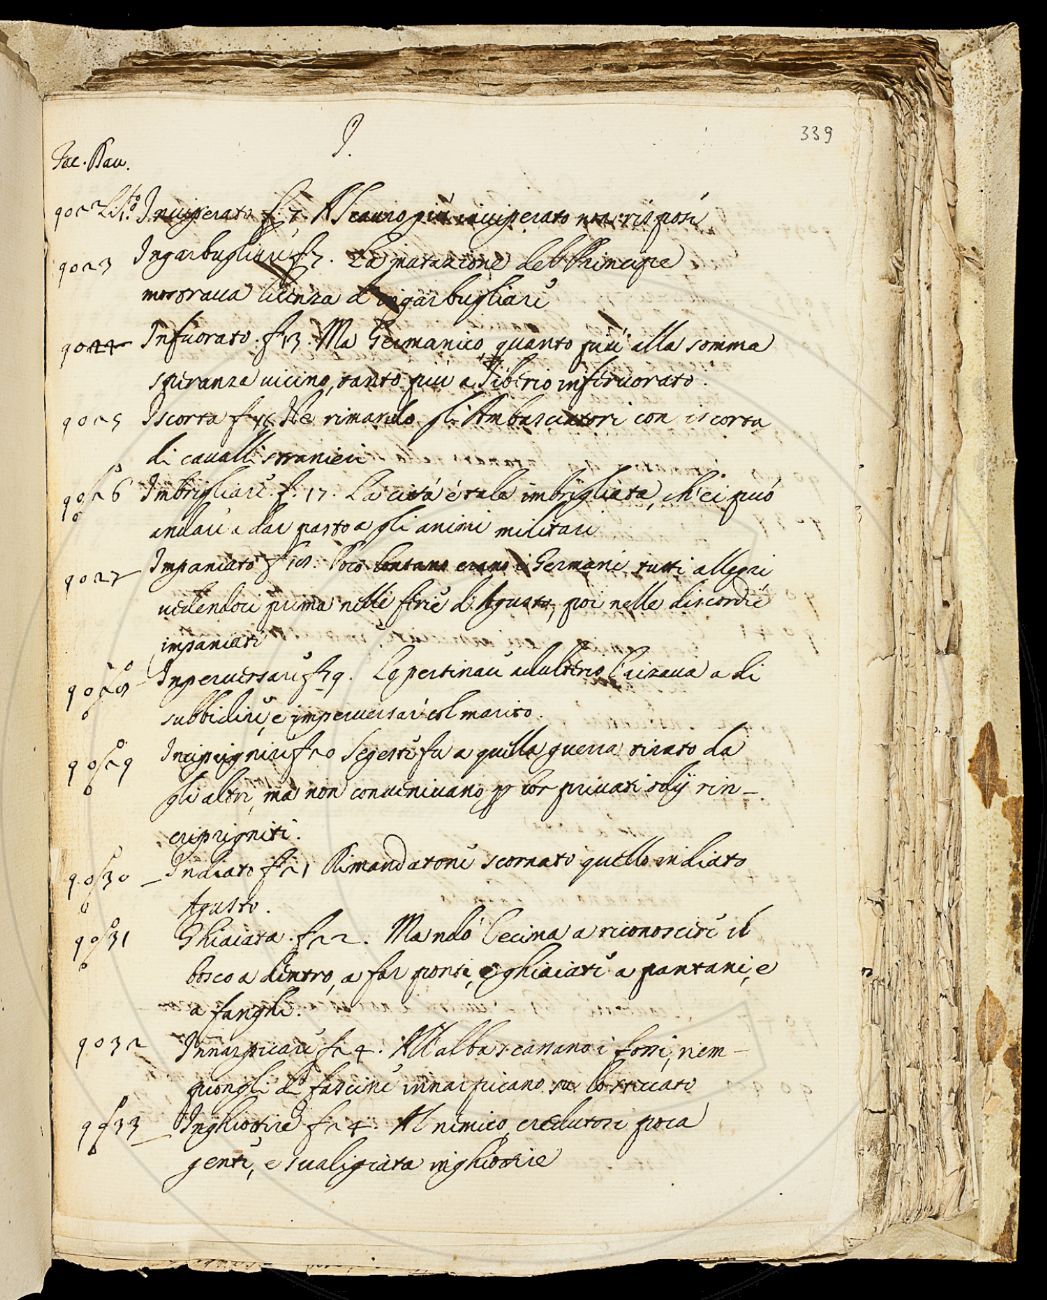 I.
339
Fac. Bau.
9022 Incuperato f. 7. Al cauno più incuperato non rispose
9023 Ingarbugliare f. 7. La mutazione del Principe
mostraua licenza d'ingarbugliare
9024 Infuorato. f. 13. Ma Germanico, quanto più alla somma
speranza uicino, tanto piu a Tiberio inferuorato.
9025 Iscorta f. 16. Ne rimandò gli Ambasciatori con iscorta
di caualli stranieri
9026 Imbrigliare f. 17. La città è tale imbrigliata, ch'ei può
andare a dar pasto a gli animi militari
9027 Impaniato f. 18. Poco lontano erano i Germani, tutti allegri
uedendoci prima nelle ferie d'Agusto, poi nelle discordie
impaniati
9028 Inperuersare f. 19. Lo pertinace adultero l'aizzaua a di
subbidire, e imperuersar col marito.
9029 Incipignire f. 20 Segeste fu a quella guerra tirato da
gli altri, ma non conueniuano p lor priuati odij rin-
cipigniti.
9030 Indiato f. 21 Rimandatone scornato quello indiato
Agusto.
9031 Ghiaiata. f. 22. Mandò Cecina a riconoscere il
bosco a dentro, a far ponti, e ghiaiate a pantani, e
a fanghi.
9032 Innarpicare f. 24. All'alba scassano i fossi, riem-
piongli di fascine innarpicano su lo steccato
9033 Inghiottire f. 24. Al nimico, credutosi poca
gente, e sualigiata inghiottire